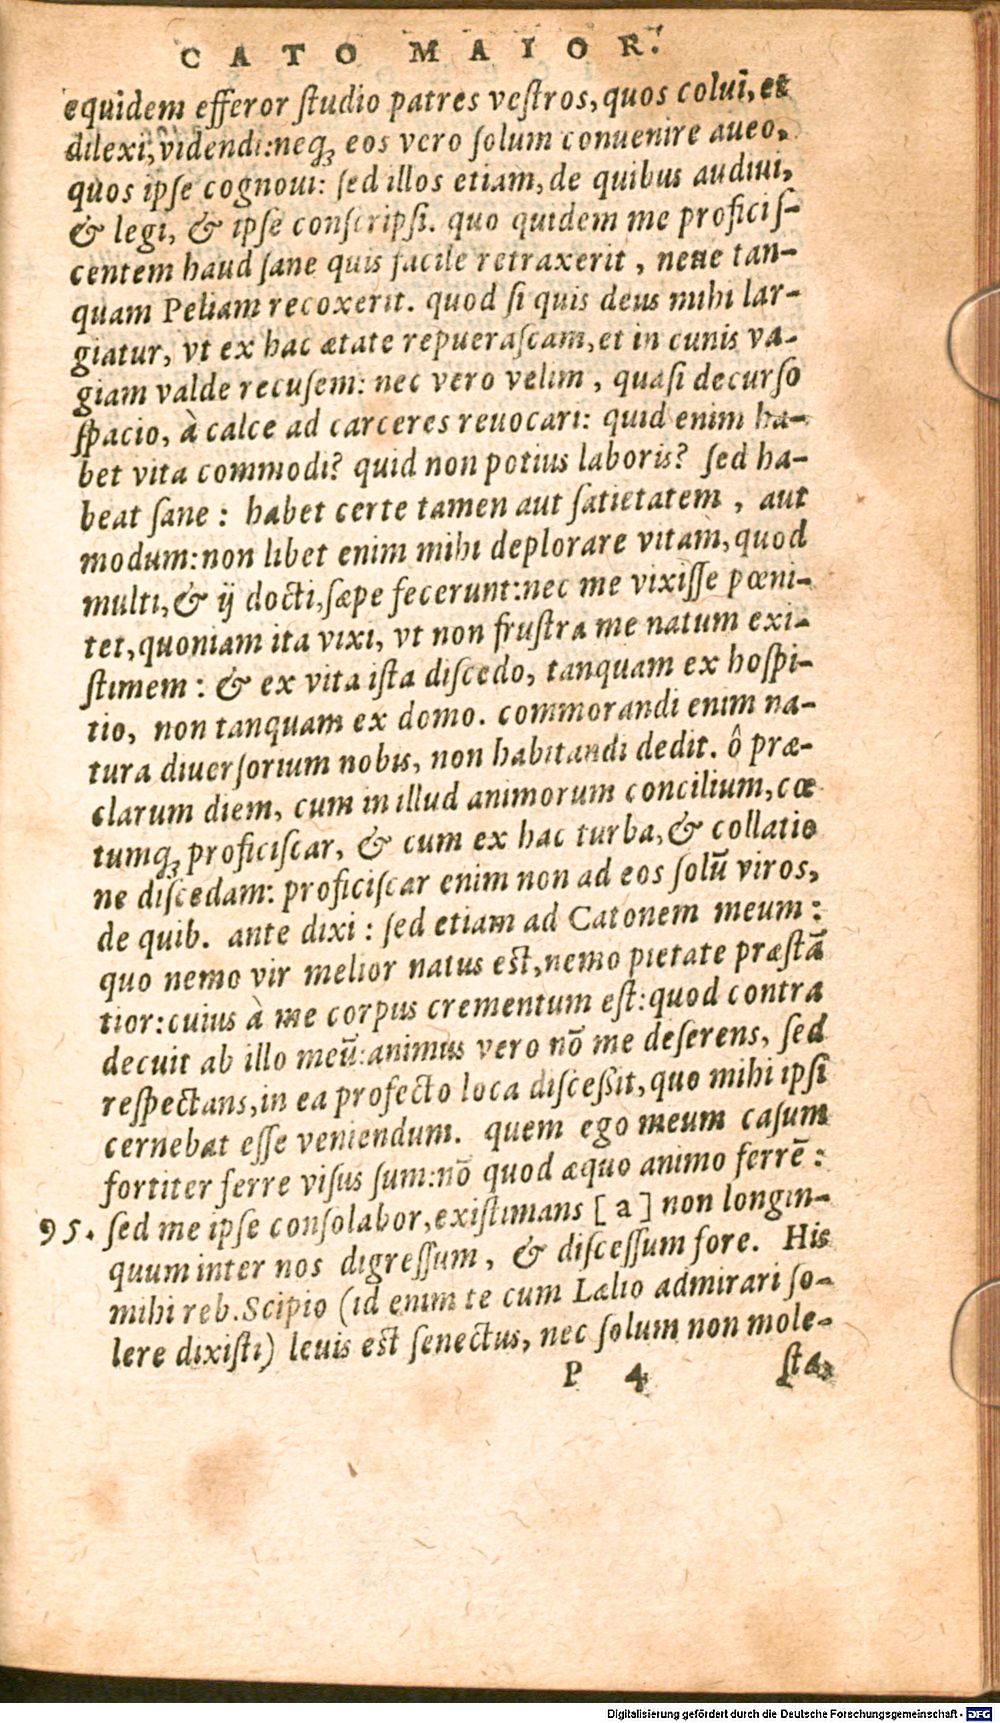 CATO MAIOR.
equidem efferor ſtudio patres veſtros, quos colui, et
dilexi, videndi: neq́ꝫ eos vero ſolum conuenire aueo,
quos ipſe cognoui: ſed illos etiam, de quibus audiui,
& legi, & ipſe conſcripſi. quo quidem me proficiſ-
centem haud ſane quis facile retraxerit, neue tan-
quam Peliam recoxerit. quod ſi quis deus mihi lar-
giatur, vt ex hac ætate repueraſcam, et in cunis va-
giam valde recuſem: nec vero velim, quaſi decurſo
ſpacio, à calce ad carceres reuocari: quid enim ha-
bet vita commodi? quid non potius laboris? ſed ha-
beat ſane: habet certe tamen aut ſatietatem, aut
modum: non libet enim mihi deplorare vitam, quod
multi, & ij docti, ſæpe fecerunt: nec me vixiſſe pœni-
tet, quoniam ita vixi, vt non fruſtra me natum exi-
ſtimem: & ex vita iſta diſcedo, tanquam ex hoſpi-
tio, non tanquam ex domo. commorandi enim na-
tura diuerſorium nobis, non habitandi dedit. ô præ-
clarum diem, cum in illud animorum concilium, cœ
tumq́ꝫ proficiſcar, & cum ex hac turba, & collatio
ne diſcedam: proficiſcar enim non ad eos ſolū viros,
de quib. ante dixi: ſed etiam ad Catonem meum:
quo nemo vir melior natus eſt, nemo pietate præſtā
tior: cuius à me corpus crementum eſt: quod contra
decuit ab illo meū: animus vero nō me deſerens, ſed
reſpectans, in ea profecto loca diſceßit, quo mihi ipſi
cernebat eſſe veniendum. quem ego meum caſum
fortiter ferre viſus ſum: nō quod æquo animo ferrē:
95. ſed me ipſe conſolabor, exiſtimans [a] non longin-
quum inter nos digreſſum, & diſceſſum fore. His
mihi reb. Scipio (id enim te cum Lælio admirari ſo-
lere dixiſti) leuis eſt ſenectus, nec ſolum non mole-
P 4 ſta,
Digitalisierung gefördert durch die Deutsche Forschungsgemeinschaft - DFG